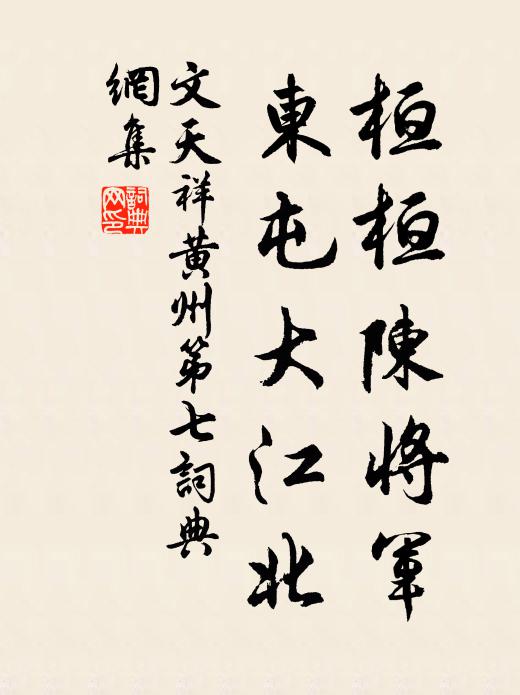 桓桓陳將軍
東屯大江北
文天祥黄州第七詞典
網集
詞典网印